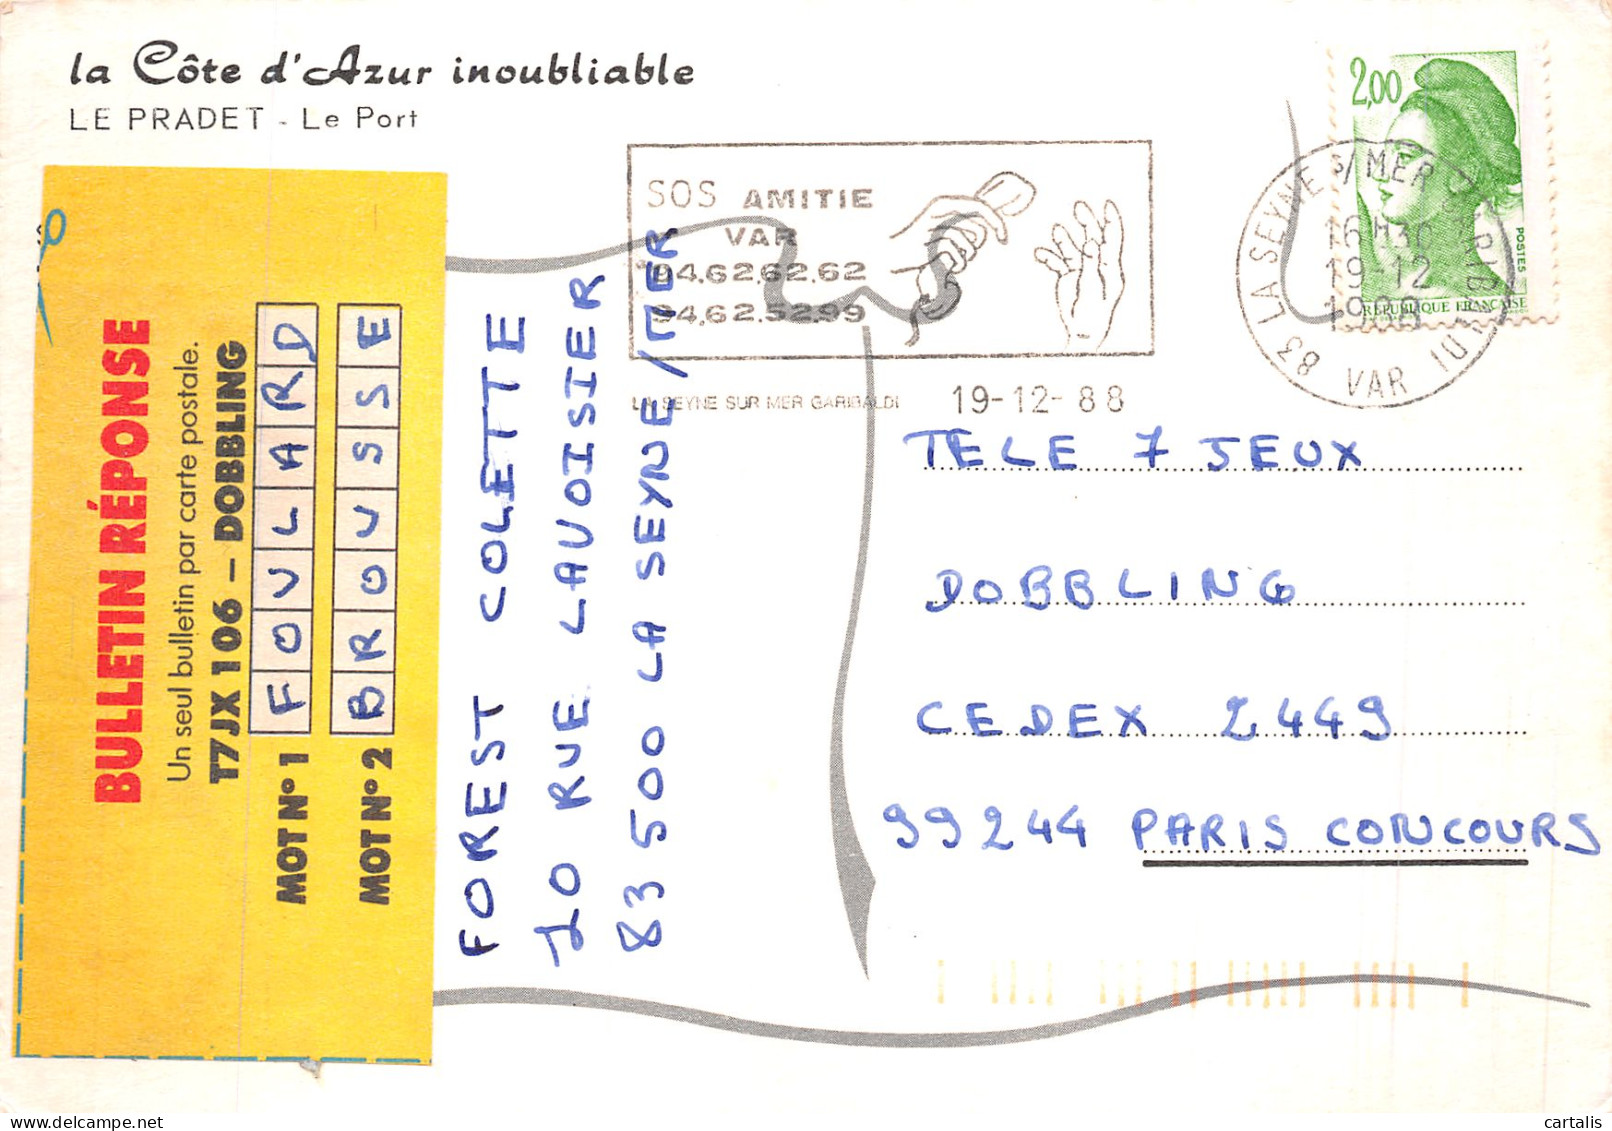 la Côte d'Azur inoubliable
LE PRADET - Le Port
BULLETIN RÉPONSE
Un seul bulletin par carte postale.
T7JX 106 – DOBBLING
MOT N° 1 FOULARD
MOT N° 2 BROUSSE
FOREST COLETTE
10 RUE LAVOISIER
83 500 LA SEYNE/MER
SOS AMITIE
VAR
94.62.62.62
94.62.52.99
LA SEYNE SUR MER GARIBALDI 19-12-88
2,00
POSTES
RÉPUBLIQUE FRANÇAISE
83 LA SEYNE S/MER GARIBALDI
16H30
19-12
1988
VAR
TELE 7 JEUX
DOBBLING
CEDEX 2449
99244 PARIS CONCOURS
cartalis